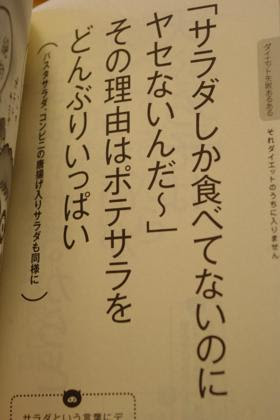 ダイエット失敗あるある
それダイエットのうちに入りません
「サラダしか食べてないのに
ヤセないんだ〜」
その理由はポテサラを
どんぶりいっぱい
(パスタサラダ、コンビニの唐揚げ入りサラダも同様に)
サラダという言葉にデ